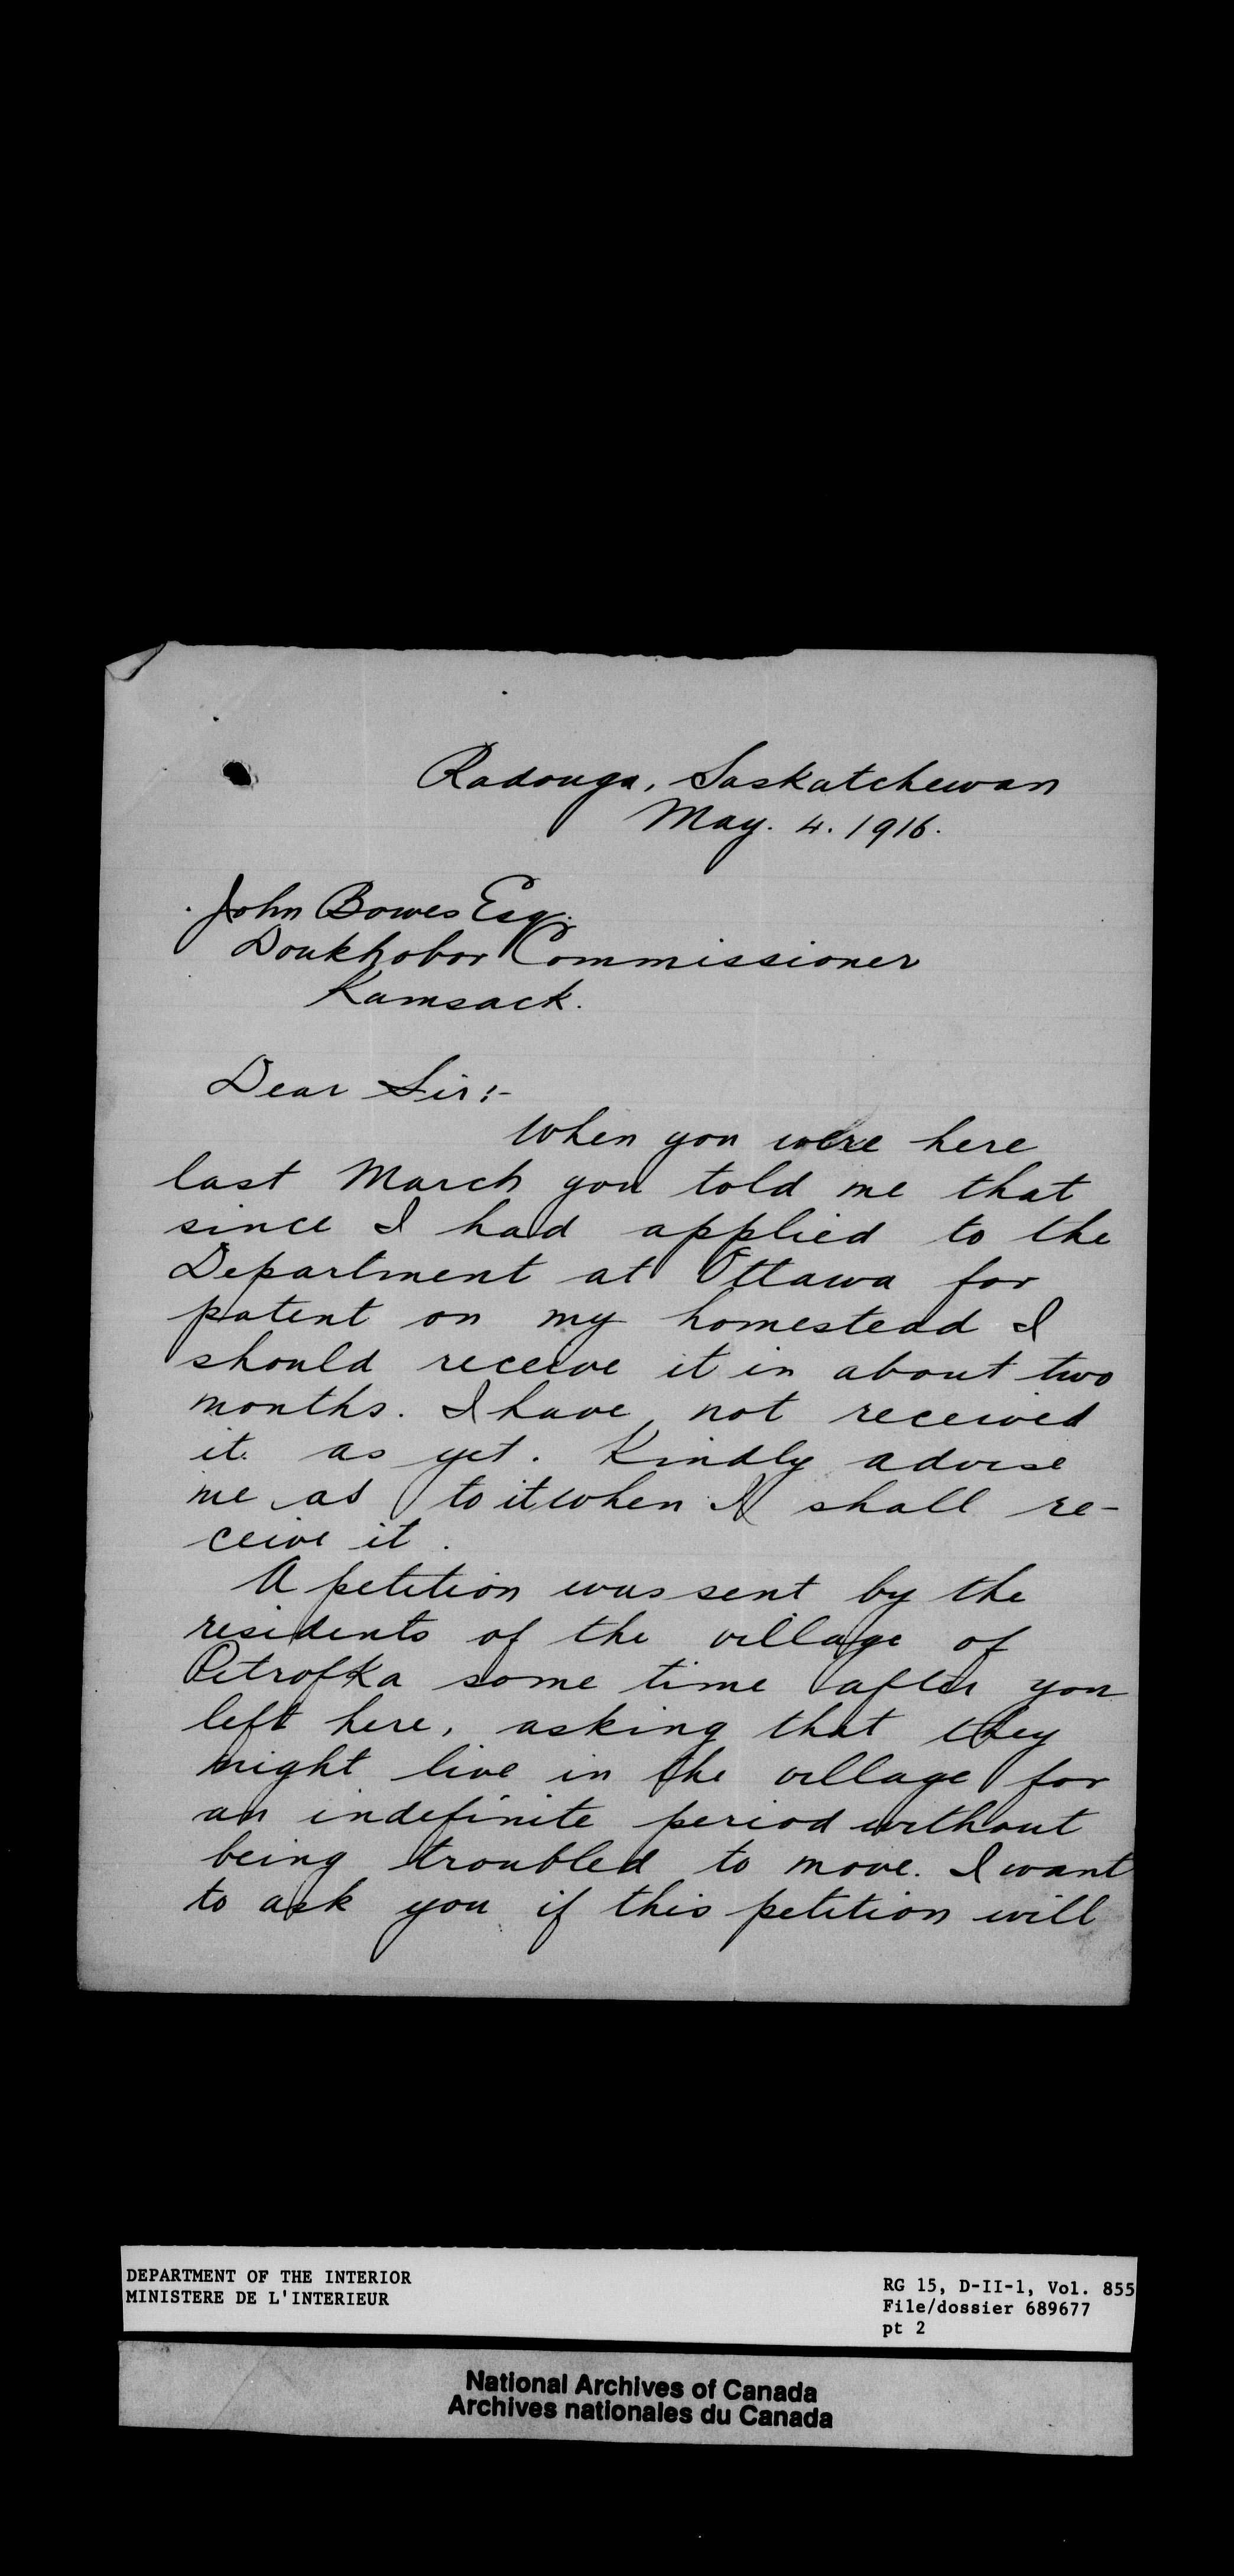 Radouga, Saskatchewan
May. 4. 1916.
John Bowes Esq.
Doukhobor Commissioner
Kamsack.
Dear Sir:-
When you were here
last March you told me that
since I had applied to the
Department at Ottawa for
patent on my homestead I
should receive it in about two
months. I have not received
it as yet. Kindly advise
me as to it when I shall re-
ceive it.
A petition was sent by the
residents of the village of
Petrofka some time after you
left here, asking that they
might live in the village for
an indefinite period without
being troubled to move. I want
to ask you if this petition will
DEPARTMENT OF THE INTERIOR
MINISTERE DE L'INTERIEUR
RG 15, D-II-1, Vol. 855
File/dossier 689677
pt 2
National Archives of Canada
Archives nationales du Canada